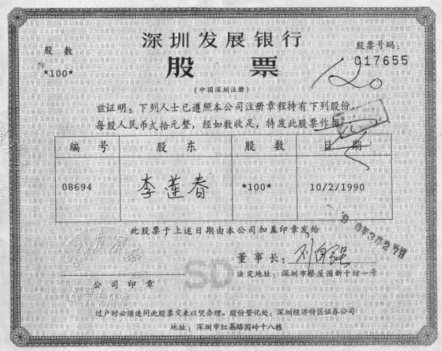 深圳发展银行
股票
(中国深圳注册)
股数
*100*
股票号码:
017655
120
兹证明:下列人士已遵照本公司注册章程持有下列股份,
每股人民币贰拾元整,经如数收足,特发此股票作
编号 股东 股数 日期
08694 李莲春 *100* 10/2/1990
此股票于上述日期由本公司加盖印章发给
董事长:
法定地址:深圳市
公司印章
SD
过户时必须连同此股票交来以凭办理。股份登记处:深圳经济特区证券公司
地址:深圳市红荔路园岭十八栋